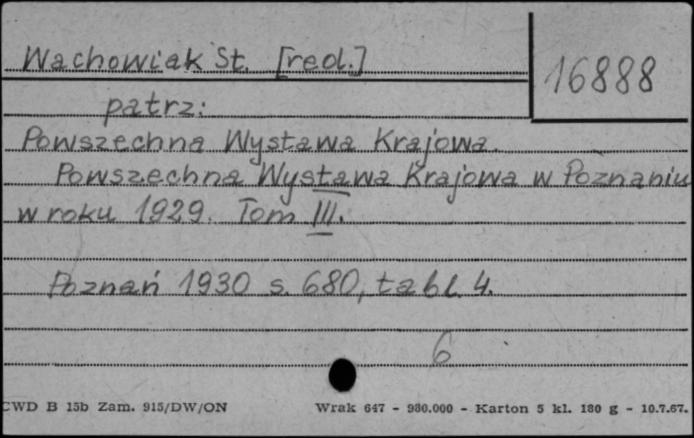 Wachowiak St. [red.]
16888
patrz:
Powszechna Wystawa Krajowa.
Powszechna Wystawa Krajowa w Poznaniu
w roku 1929. Tom III.
Poznań 1930 s. 680, tabl. 4.
6
CWD B 15b Zam. 915/DW/ON
Wrak 647 - 980.000 - Karton 5 kl. 180 g - 10.7.67.